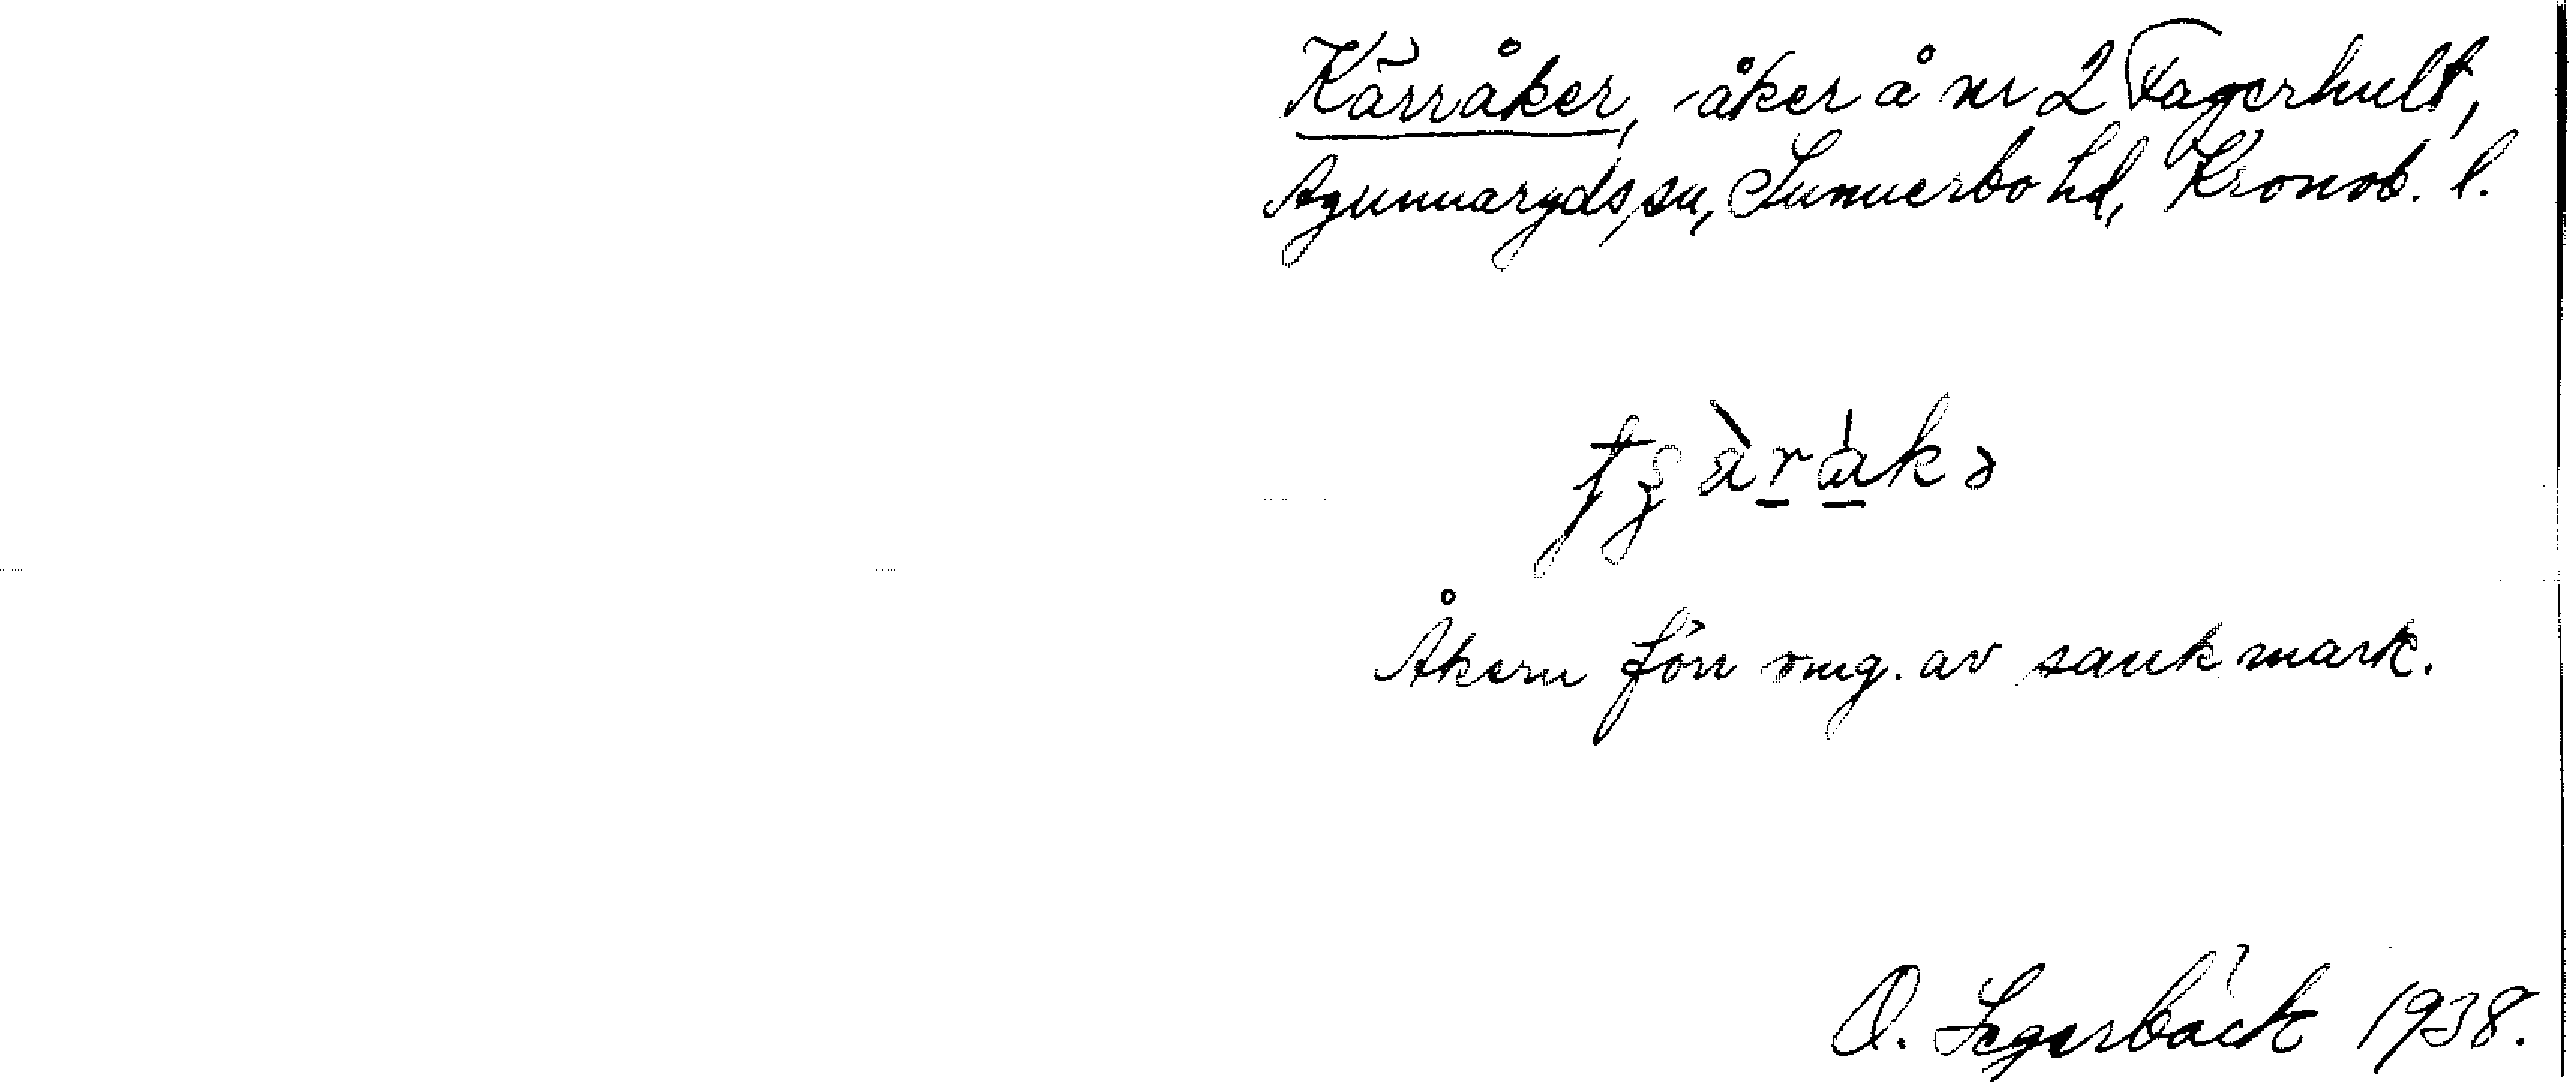 Kärråker, åker å nr 2 Fagerhult,
Agunnaryds sn, Sunnerbo hd, Kronob. l.
Åkern förr omg. av sank mark.
O. Segerbäck 1938.